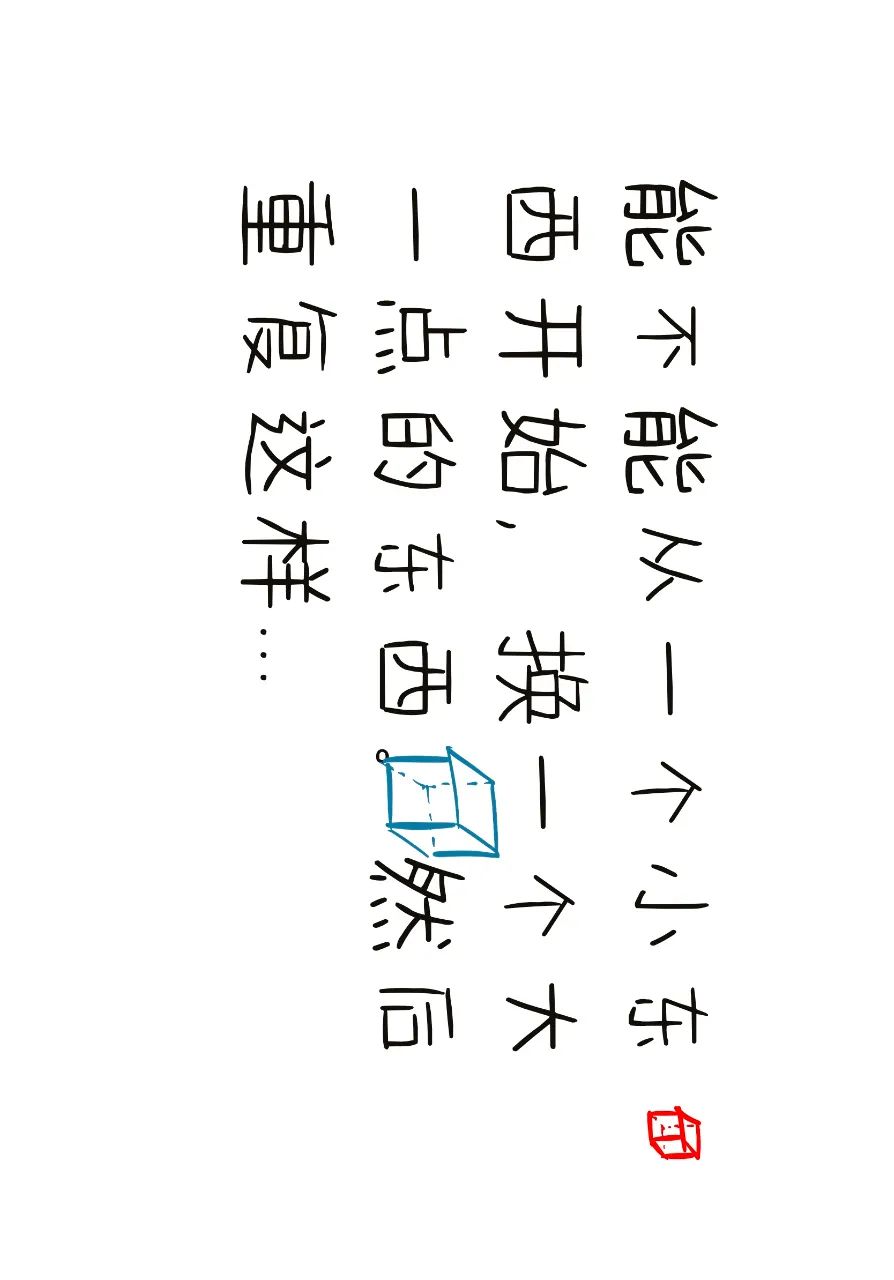 能不能从一个小东
西开始，换一个大
一点的东西。然后
重复这样...